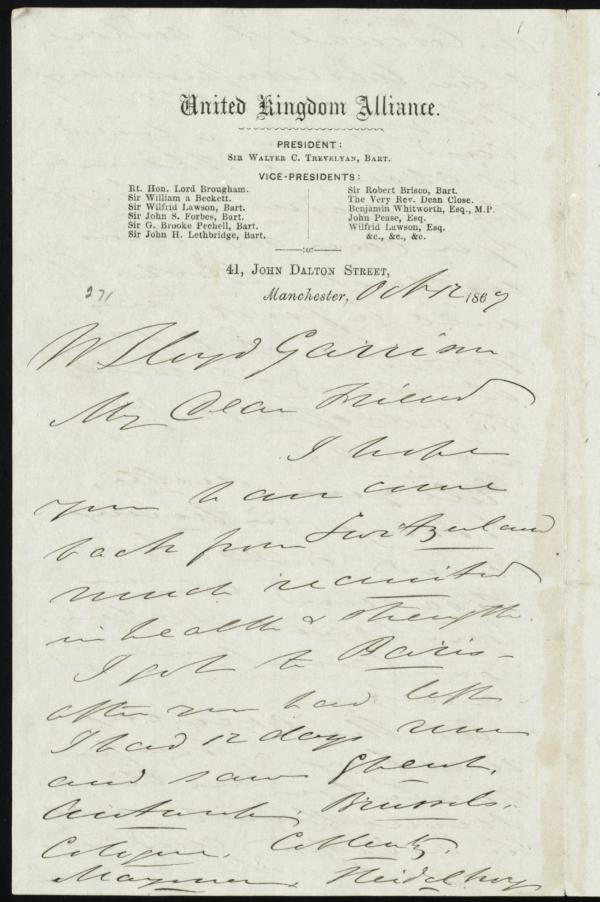 1
United Kingdom Alliance.
PRESIDENT:
SIR WALTER C. TREVELYAN, BART.
VICE-PRESIDENTS:
Rt. Hon. Lord Brougham.
Sir William a Beckett.
Sir Wilfrid Lawson, Bart.
Sir John S. Forbes, Bart.
Sir G. Brooke Pechell, Bart.
Sir John H. Lethbridge, Bart.
Sir Robert Brisco, Bart.
The Very Rev. Dean Close.
Benjamin Whitworth, Esq., M.P.
John Pease, Esq.
Wilfrid Lawson, Esq.
&c., &c., &c.
:o:
41, JOHN DALTON STREET,
Manchester, Oct 12 1867
271
W Lloyd Garrison
My Dear Friend
I hope
you have come
back from Switzerland
much recruited
in health & strength.
I got to Paris
after you had left
I had 12 days run
and saw Ghent,
Brussels,
Cologne, Coblentz,
Mayence, Heidelberg